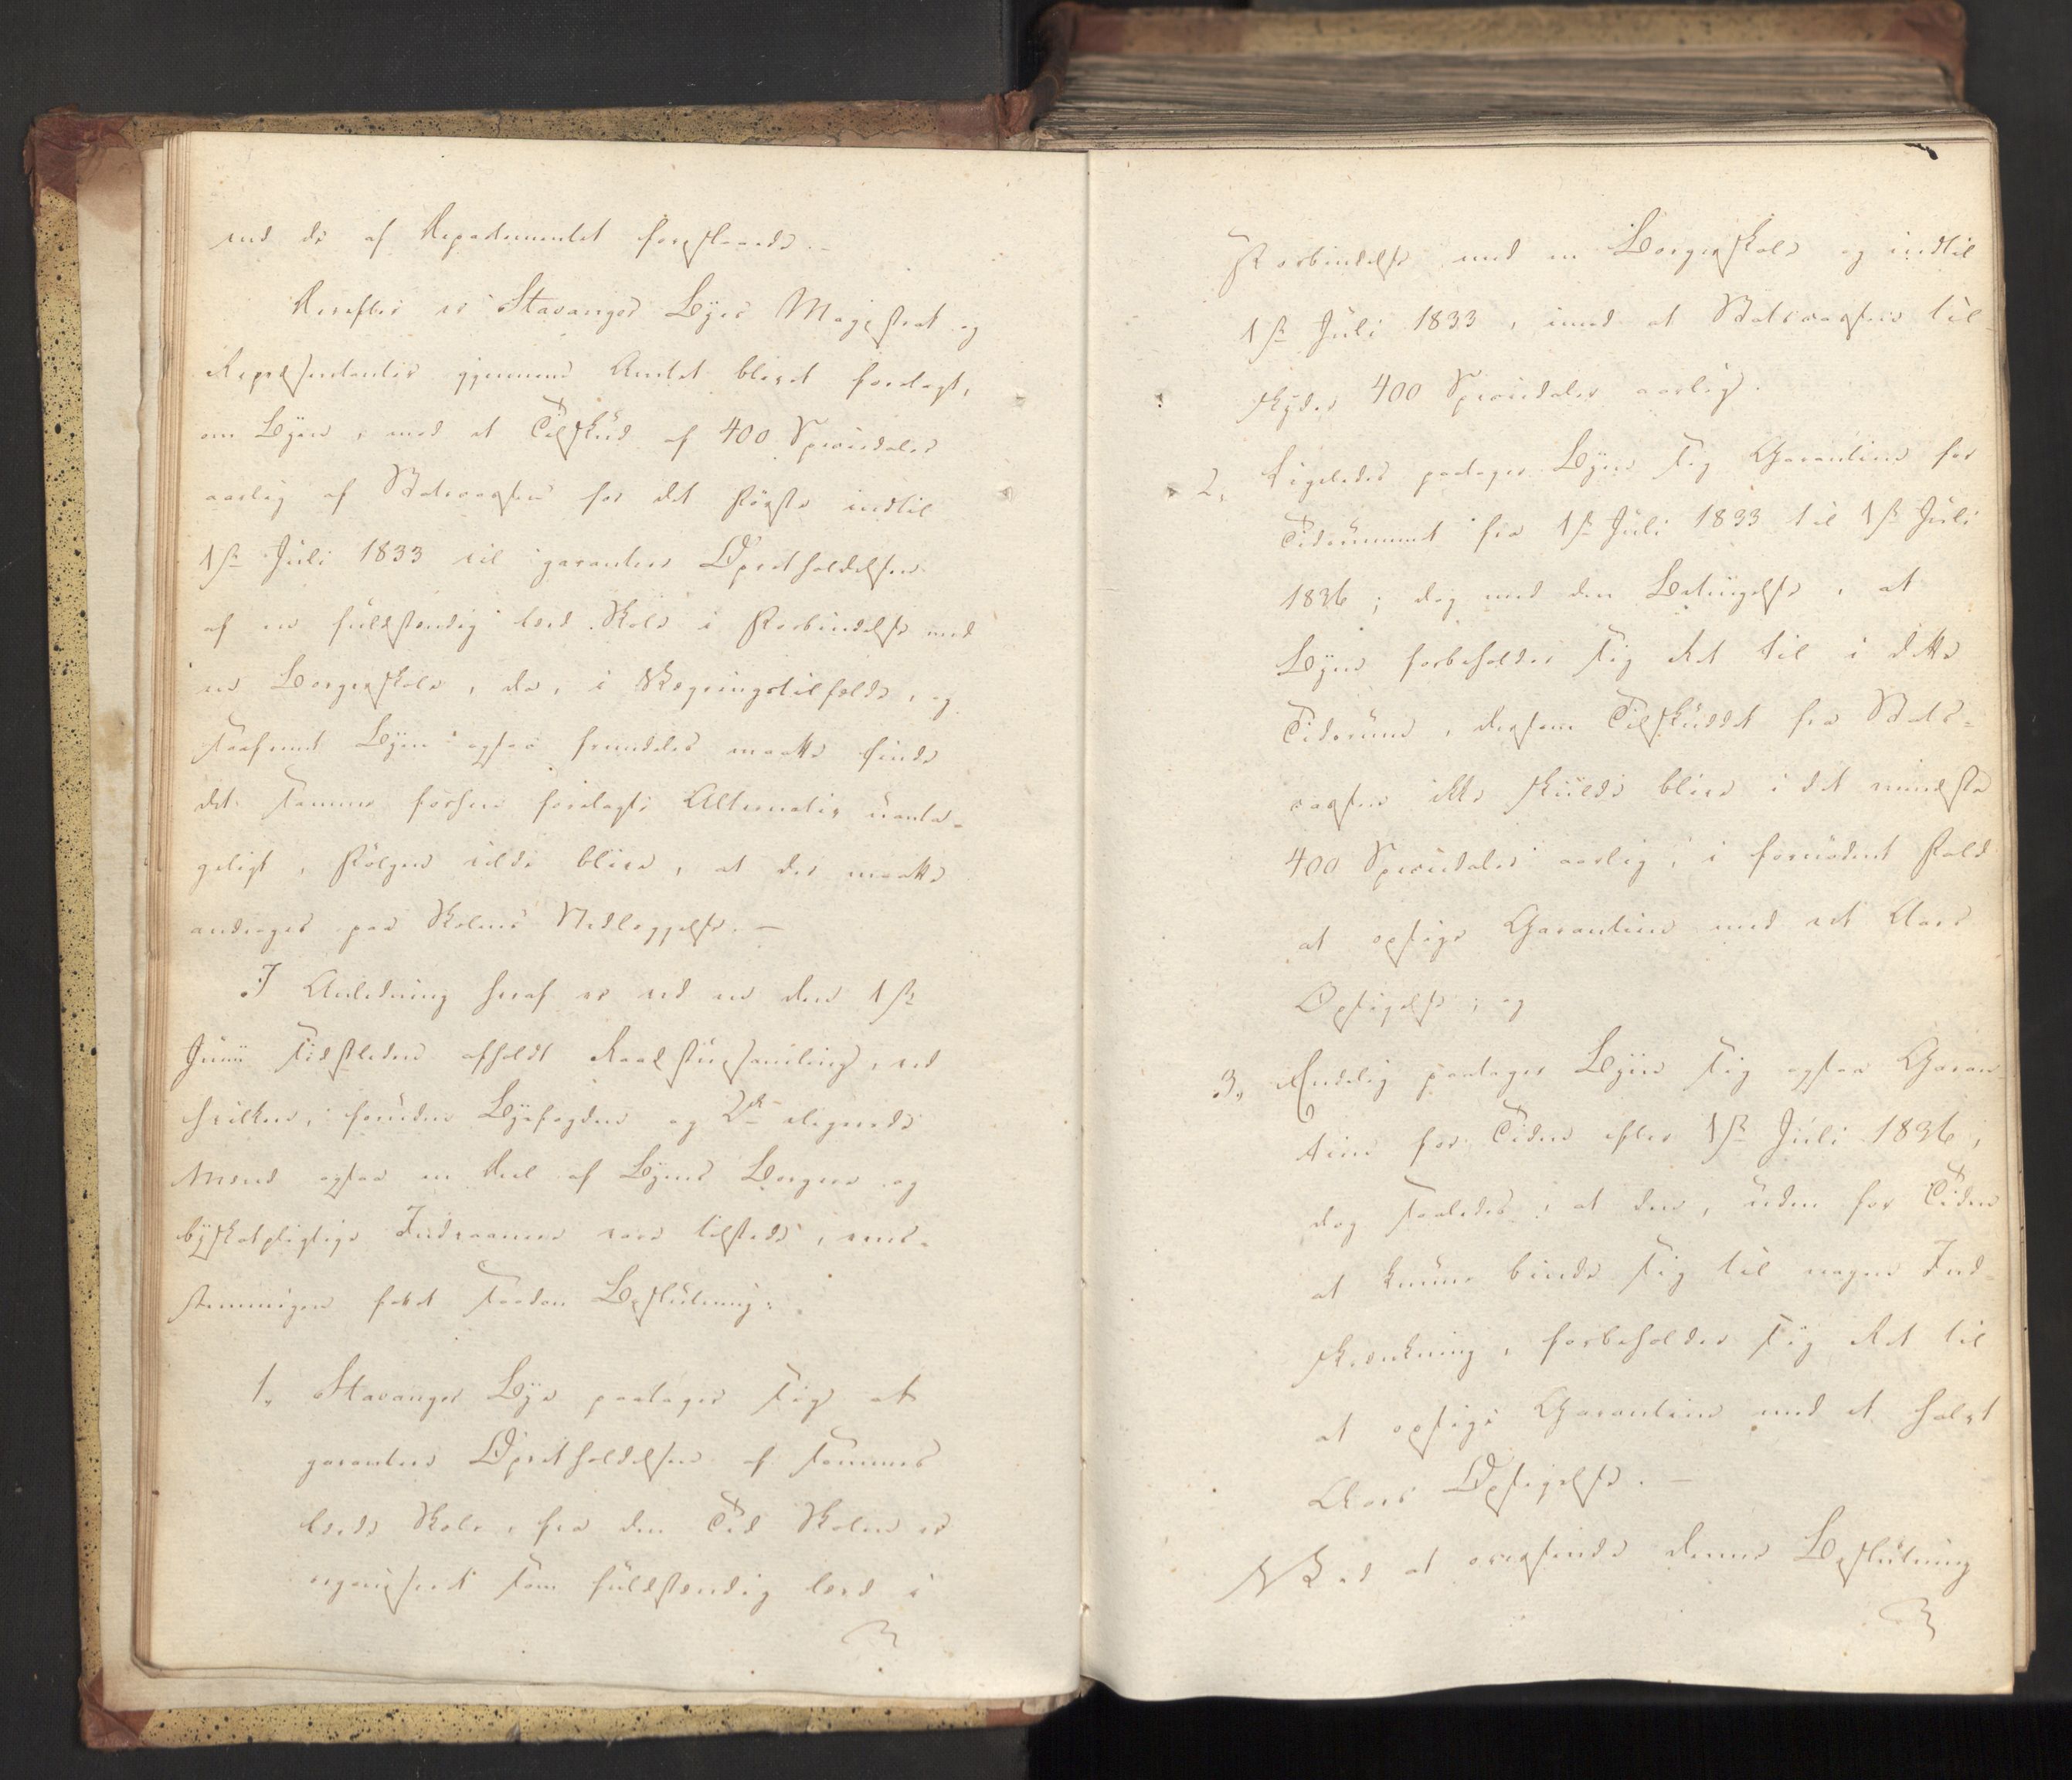 end de af Departementet foreslaaede. —
Derefter er Stavanger Byes Magistrat og
Repræsentanter gjennem Amtet blevet forelagt,
om Byen, med et Tilskud af 400 Speciedaler
aarlig af Statscassen for det Første indtil
1ste Juli 1833 vil garantere Opretholdelsen
af en fuldstændig lærd Skole i Forbindelse med
en Borgerskole, da, i Vægringstilfælde, og
saafremt Byen ogsaa fremdeles maatte finde
det samme forhen forelagte Alternativ uanta-
geligt, Følgen vilde blive, at der maatte
andrages paa Skolens Nedlæggelse. —
I Anledning heraf er ved en den 1ste
Junii sidstleden afholdt Raadstuesamling, ved
hvilken, foruden Byefogden og 12 eligerede
Mænd ogsaa en Deel af Byens Borgere og
byskatpligtige Indvaanere vare tilstede, een-
stemmigen fattet saadan Beslutning:
1, Stavanger Bye paatager sig at
garantere Opretholdelsen af sammes
lærde Skole, fra den Tid Skolen er
organiseret som fuldstændig lærd i
Forbindelse med en Borgerskole og indtil
1ste Juli 1833, imod at Statscassen til-
skyder 400 Speciedaler aarlig.
2, Ligeledes paatager Byen sig Garantien for
Tidsrummet fra 1ste Juli 1833 til 1ste Juli
1836; dog med den Betingelse, at
Byen forbeholder sig Ret til i dette
Tidsrum, dersom Tilskuddet fra Stats-
cassen ikke skulde blive i det mindste
400 Speciedaler aarlig, i fornødent Fald
at opsige Garantien med eet Aars
Opsigelse; og
3, Endelig paatager Byen sig ogsaa Garan
tien for Tiden efter 1ste Juli 1836,
dog saaledes, at den, uden for Tiden
at kunne binde sig til nogen Ind-
skrænkning, forbeholder sig Ret til
at opsige Garantien med et halvt
Aars Opsigelse. —
Ved at oversende denne Beslutning